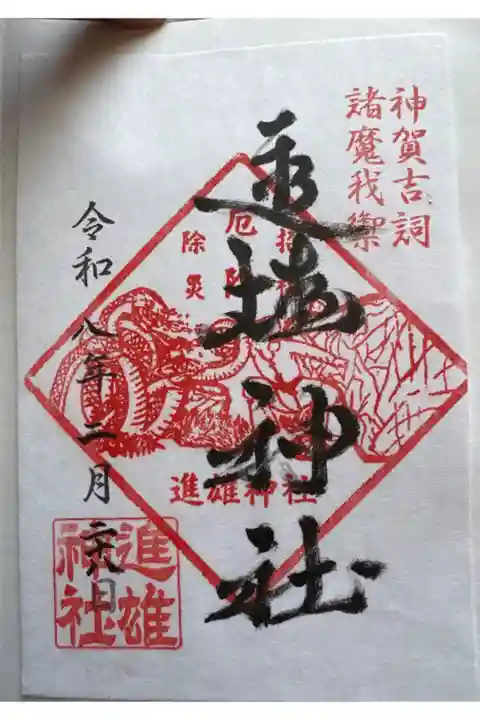 神賀吉詞
諸魔我禦
進雄神社
厄
除災
進雄神社
令和八年二月二十八日
進雄
神社